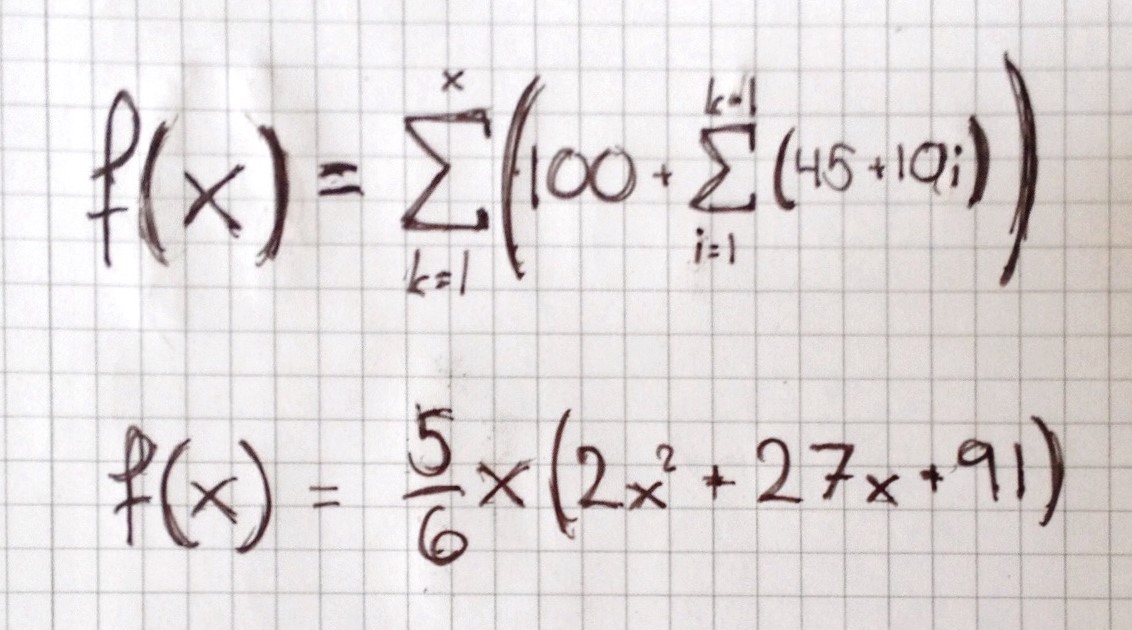 f(x) = \sum_{k=1}^{x} \left( 100 + \sum_{i=1}^{k-1} (45+10i) \right)
f(x) = \frac{5}{6} x (2x^2 + 27x + 91)